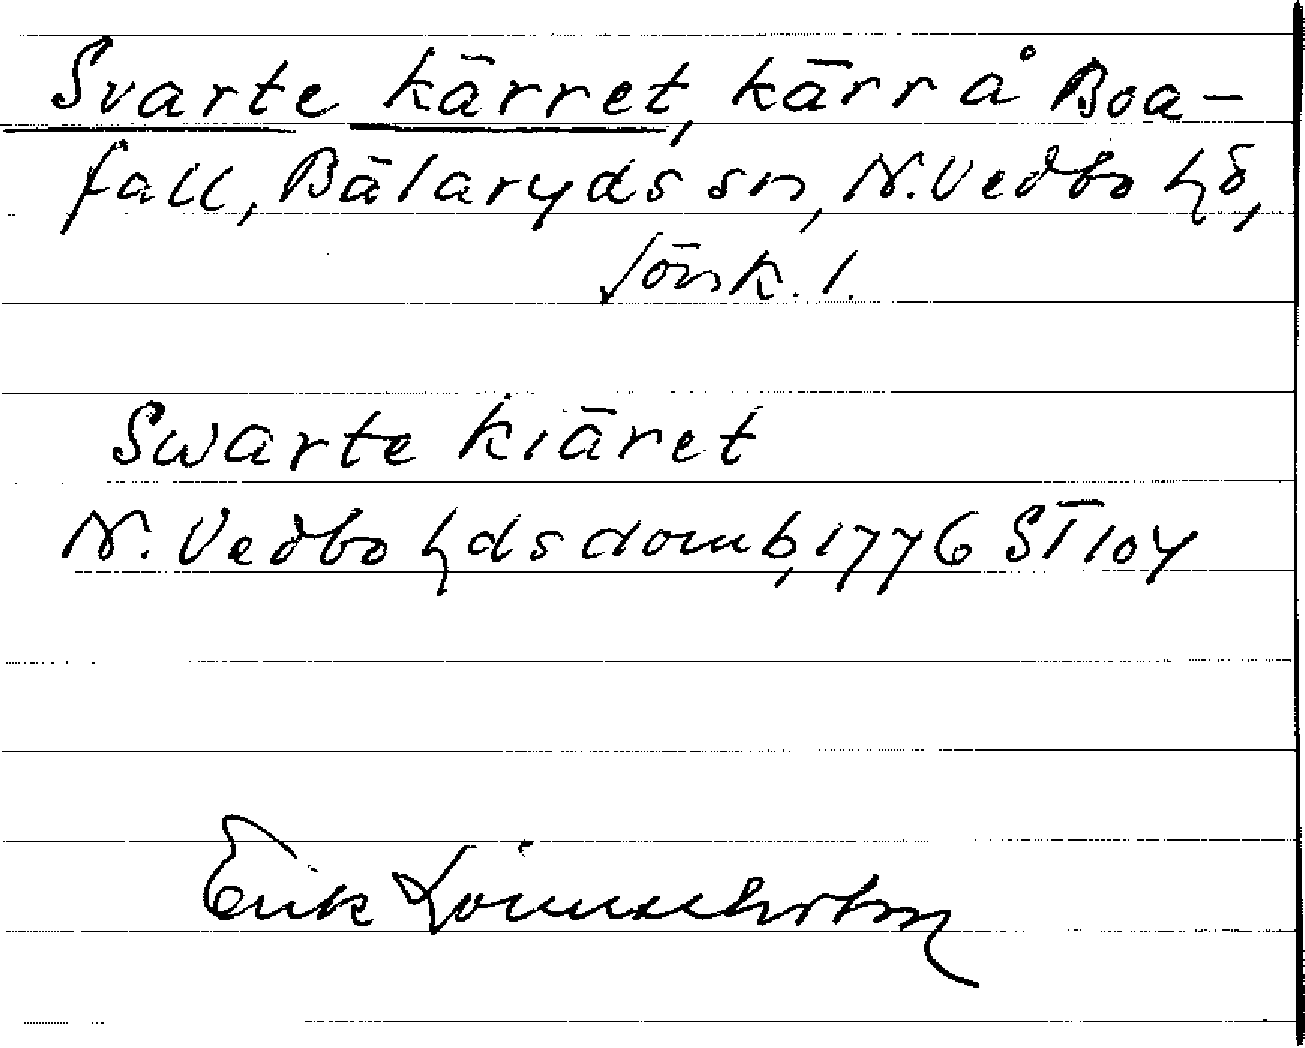 Svarte kärret, kärr å Boa-
fall, Bälaryds sn, N. Vedbo hd,
Jönk. l.
Swarte kiäret
N. Vedbo hdsdomb, 1776 ST 104
Erik